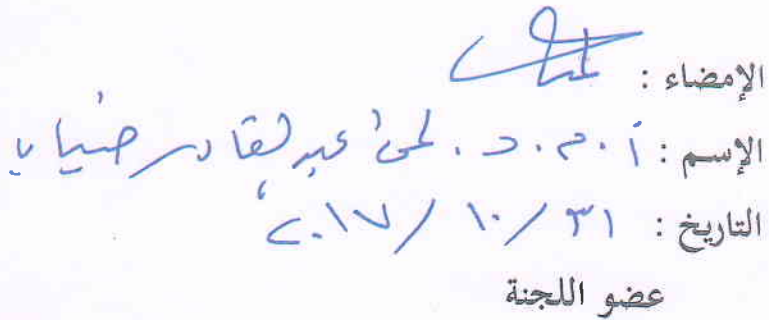 الإمضاء :
الإسم : أ.م.د. لمى عبد القادر خنياب
التاريخ : ٣١ / ١٠ / ٢٠١٧
عضو اللجنة